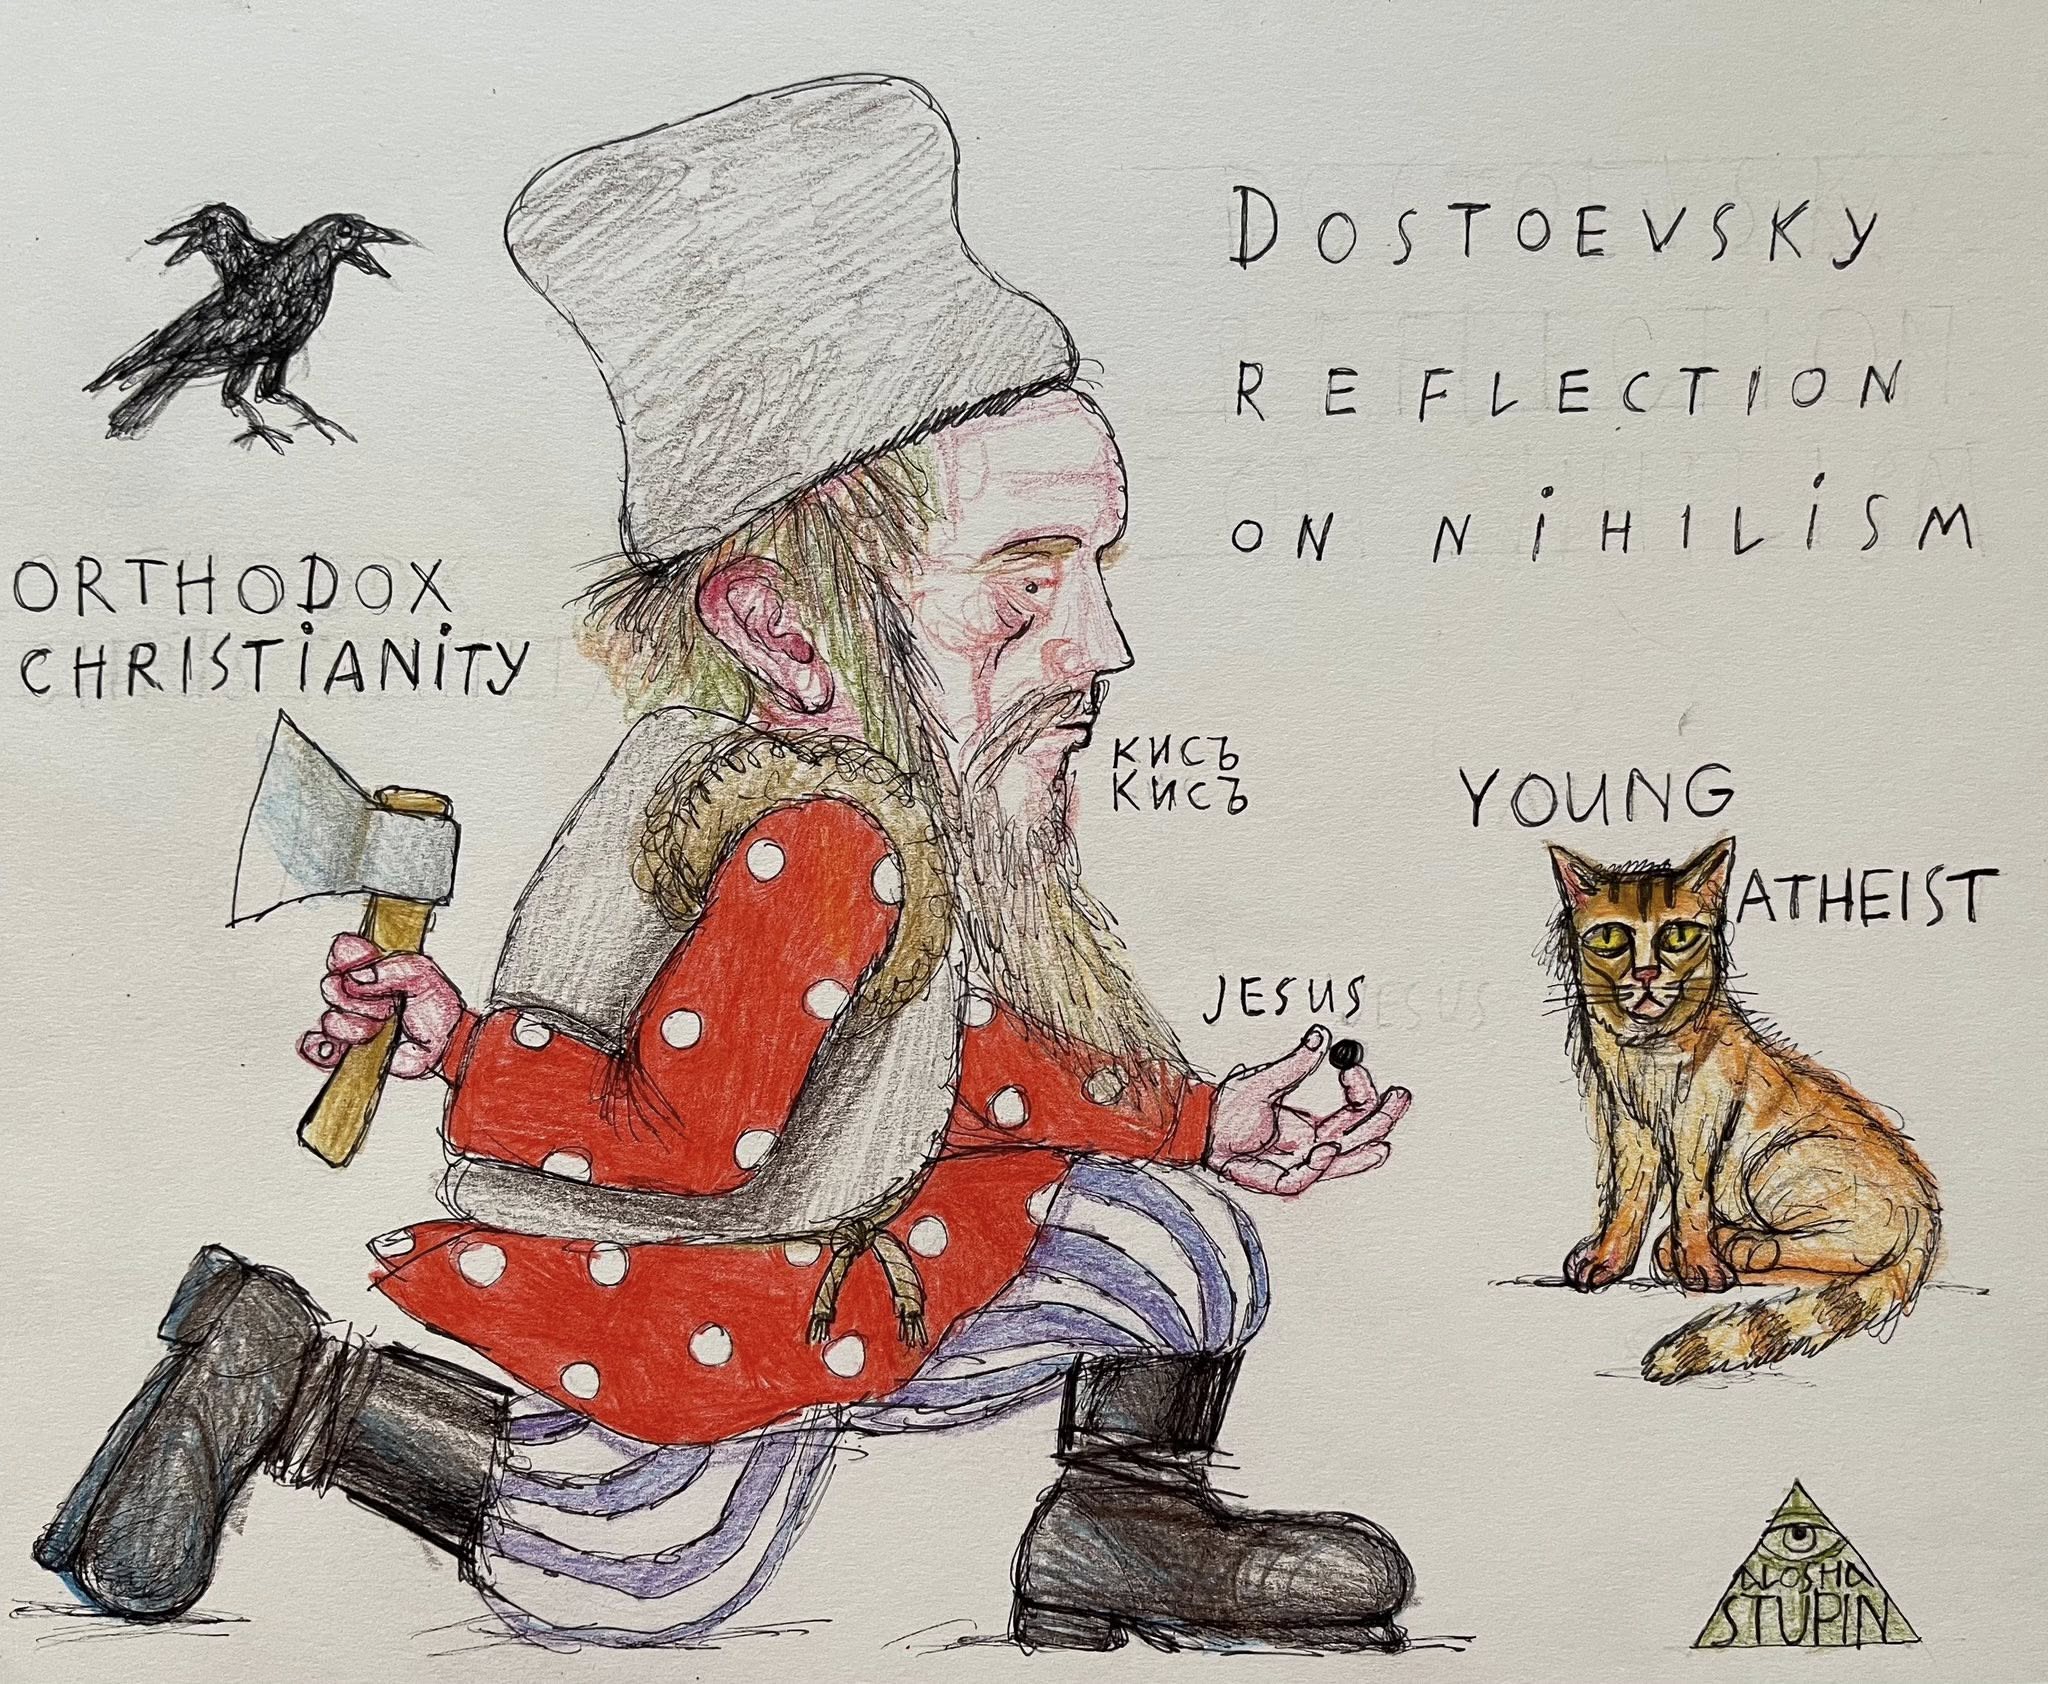 DOSTOEVSKY
REFLECTION
ON NiHILiSM
ORTHODOX
CHRISTiANiTY
КИСЪ
КИСЪ
YOUNG
ATHEIST
JESUS
ALOSHA
STUPIN